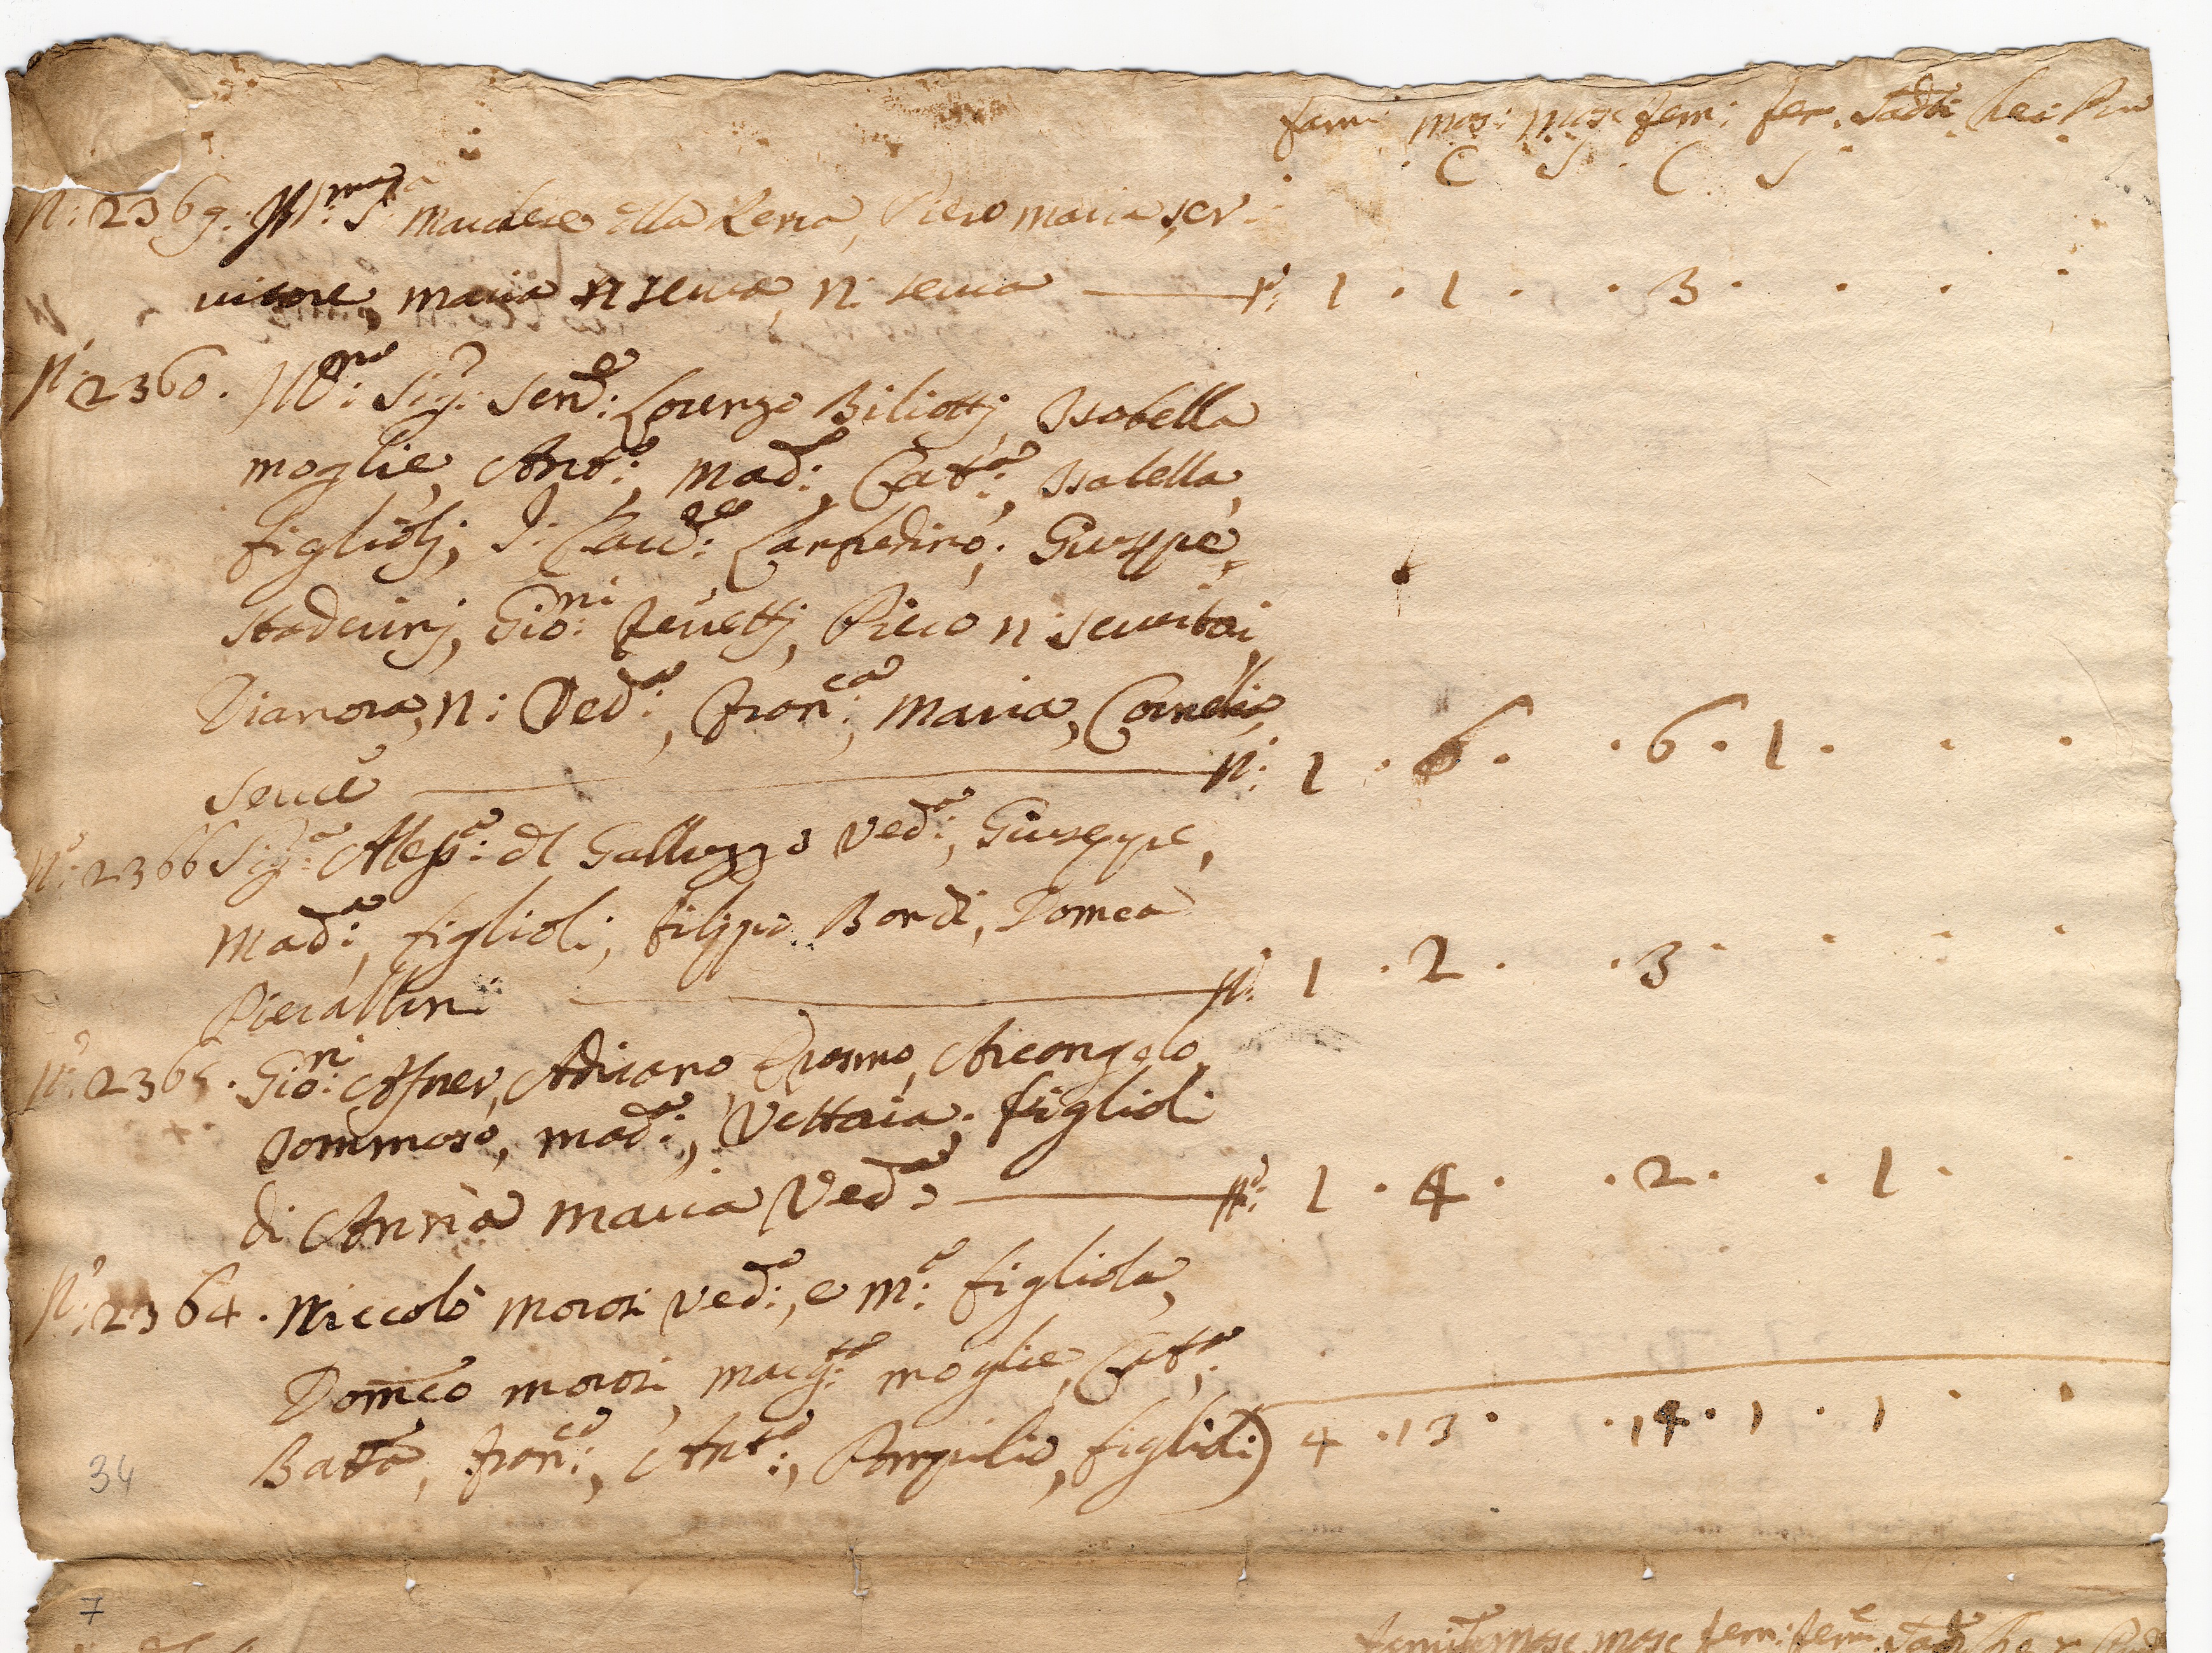 fam: mas: masc fem: fem. Sadti her: Pu
C S C S
N: 2369. Ill.ma S.a Marchese della Rena, Piero Maria ser:
uitore, Maria n serua, n: serua N: 1 . 1 . . 3 . . . .
N: 2360. Ill.mo Sig.r Sen.e Lorenzo Biliotti, Isabella
moglie, Ant.o, Mad.a, Cat.a, Isabella
figliolj, S: Giuseppe
Gio:ni Piero n: seruitori
Dianora, n: Ved.a, Fran.ca, Maria, Cornelia
serue N: 1 . 6 . . 6 . 1 . . .
N: 2366 Sig.a Aless.a del Galluzzo Ved.a, Giuseppe,
Mad.a, figlioli, Filippo Bordi, Dom.ca
Pierallini N: 1 . 2 . . 3 . . . .
N: 2365. Gio:ni Asner, Adriano Arcangelo,
Tommaso, Mad.a, Vettoria, figlioli
di Anna Maria Ved.a N: 1 . 4 . . 2 . . 1 .
N: 2364. Niccolò Morosi Ved.o, e M.a figliola,
Dom.co Morosi, Marg.ta moglie, Cat.a,
Batta, Fran.co, Ant.o, Pompilio, figlioli) 4 . 13 . . 14 . 1 . 1 . .
34
7
famil masc masc fem: fem Sad her